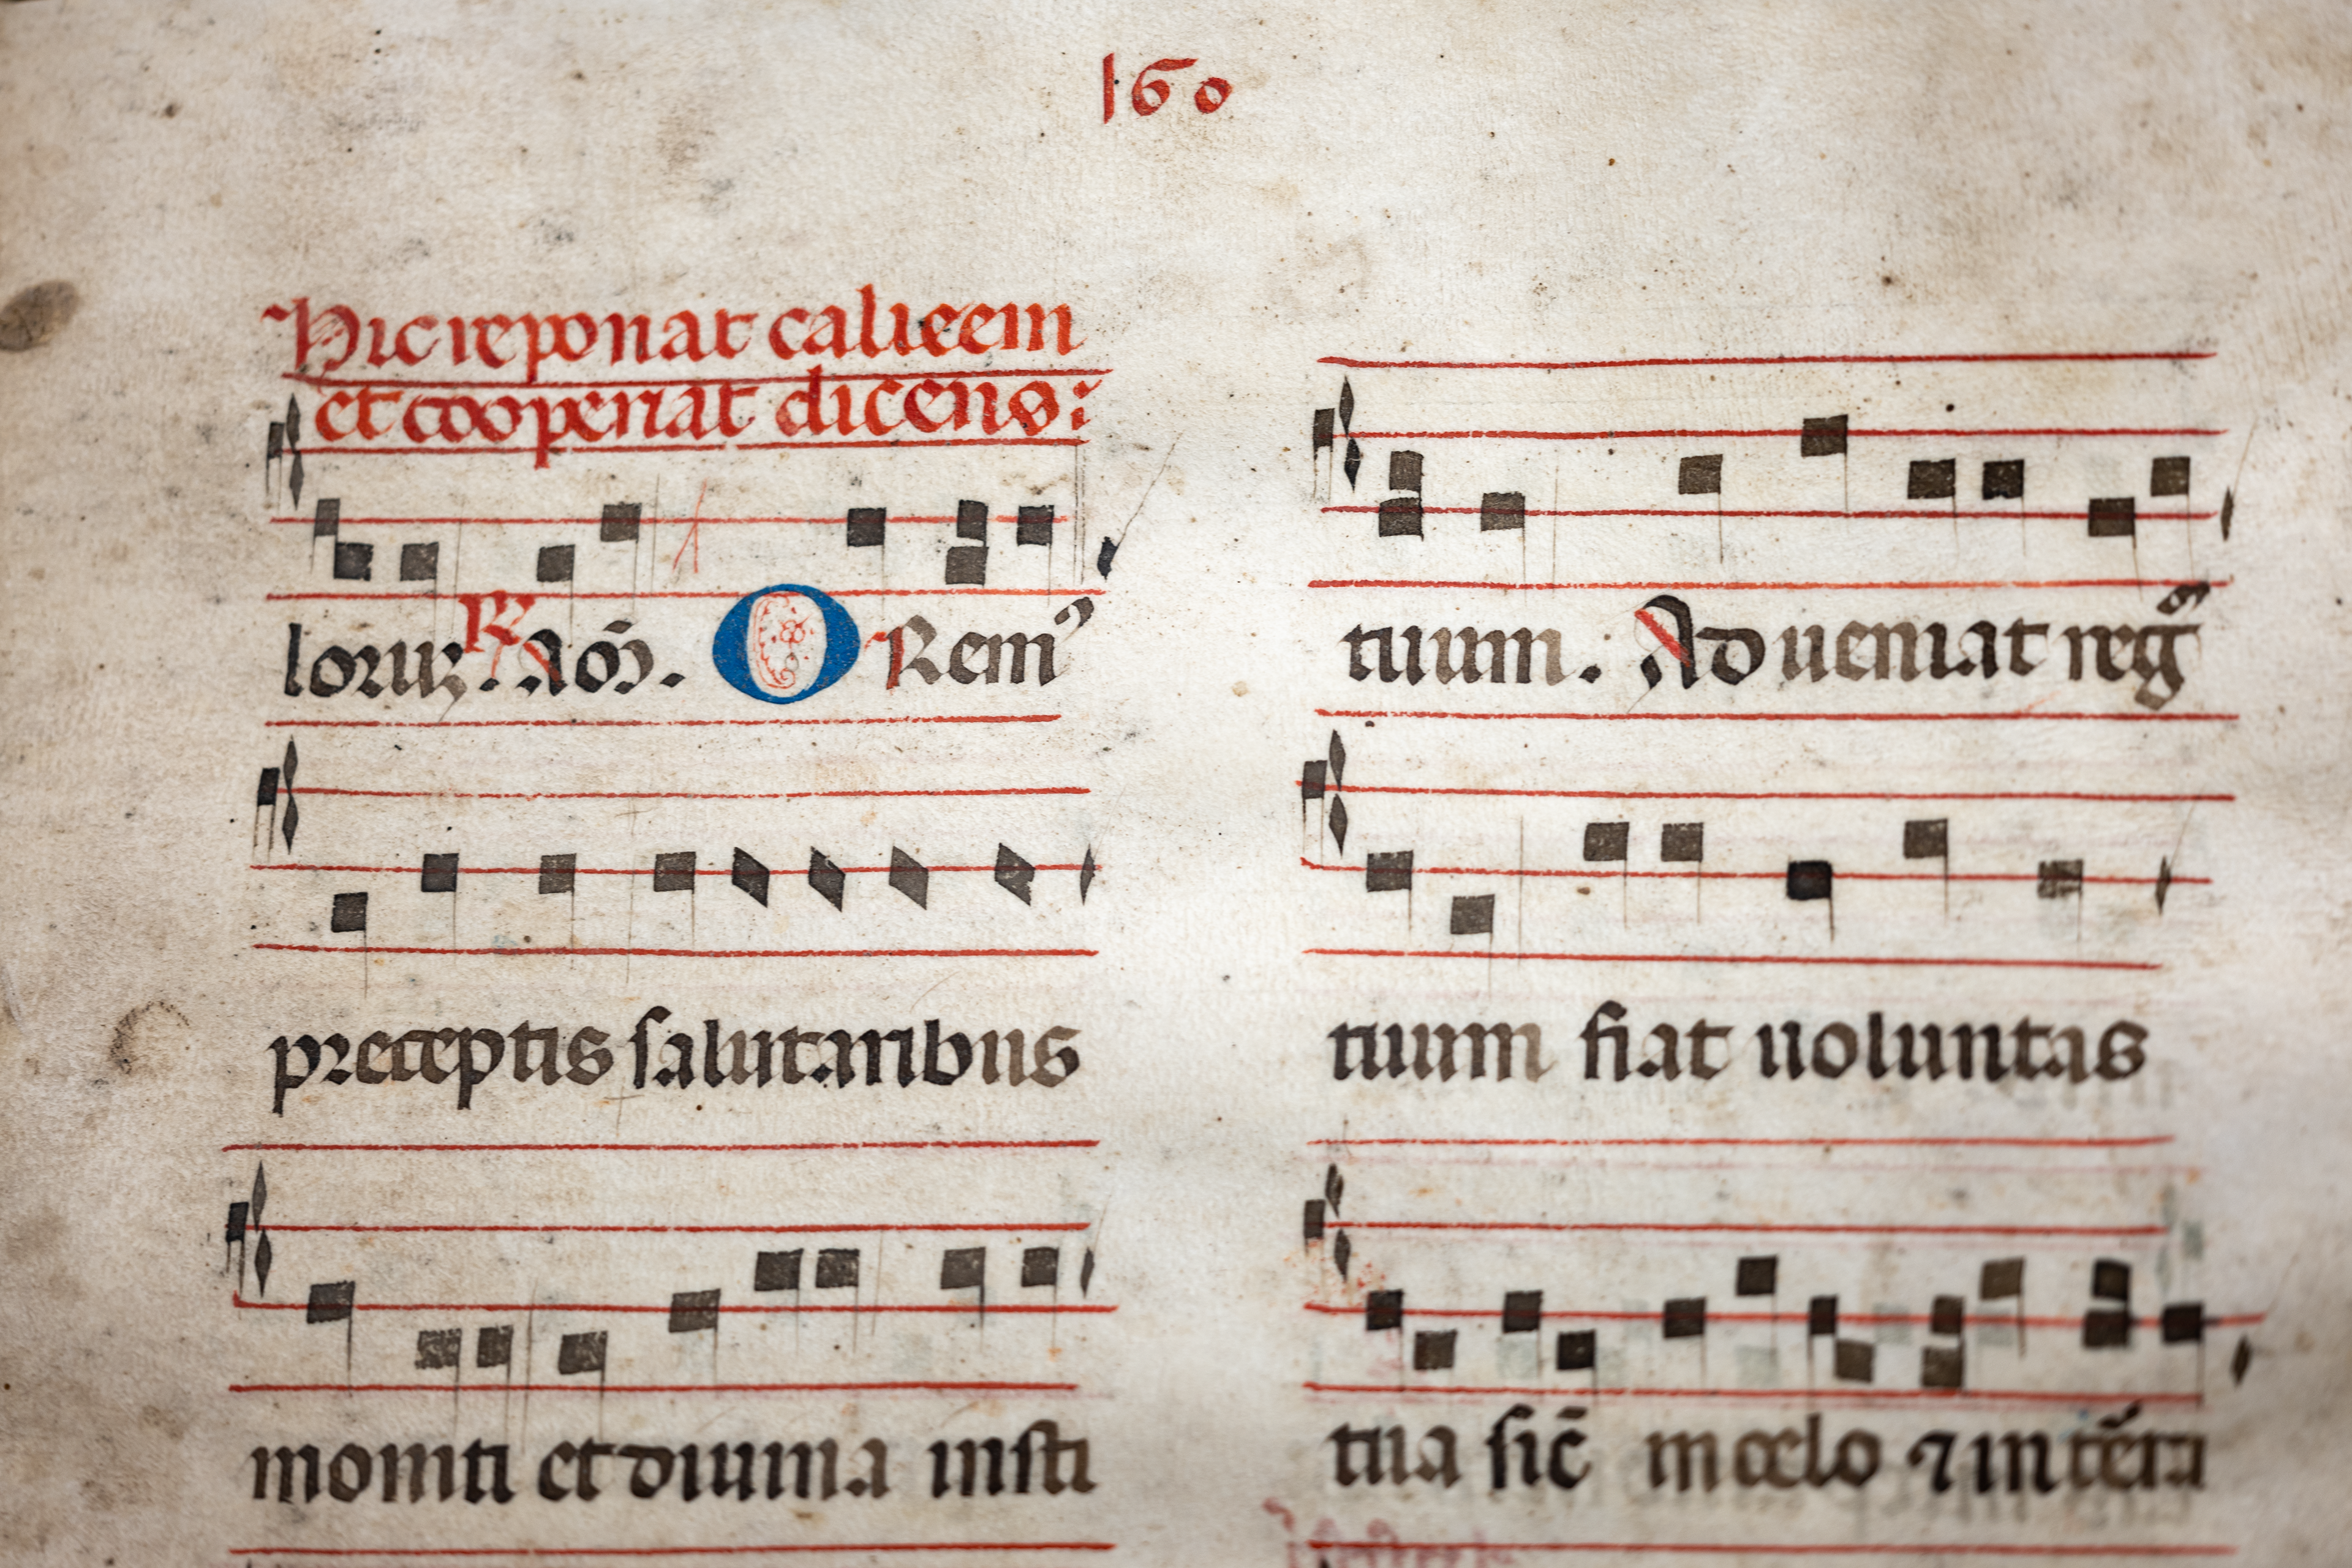 160
Hic reponat calicem
et cooperiat dicens:
loruꝝ. ℟ Am̄. ORemꝰ
preceptis salutaribus
moniti et diuina insti
tuum. Adueniat regͫ̄
tuum fiat uoluntas
tua sic̄ in celo ⁊ in tērra